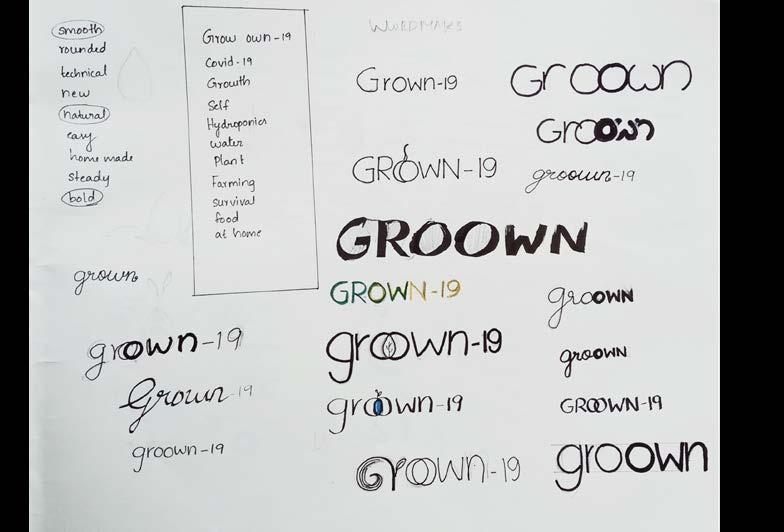 smooth
rounded
technical
new
natural
easy
home made
steady
bold
Grow own -19
Covid-19
Growth
Self
Hydroponics
water
Plant
Farming
survival
food
at home
WORDMARKS
Grown-19
Groown
Groown
GROWN-19
groown-19
GROOWN
grown
GROWN-19
groown
grown-19
groown-19
groown
Grown-19
groown-19
GROOWN-19
groown-19
Groown-19
groown